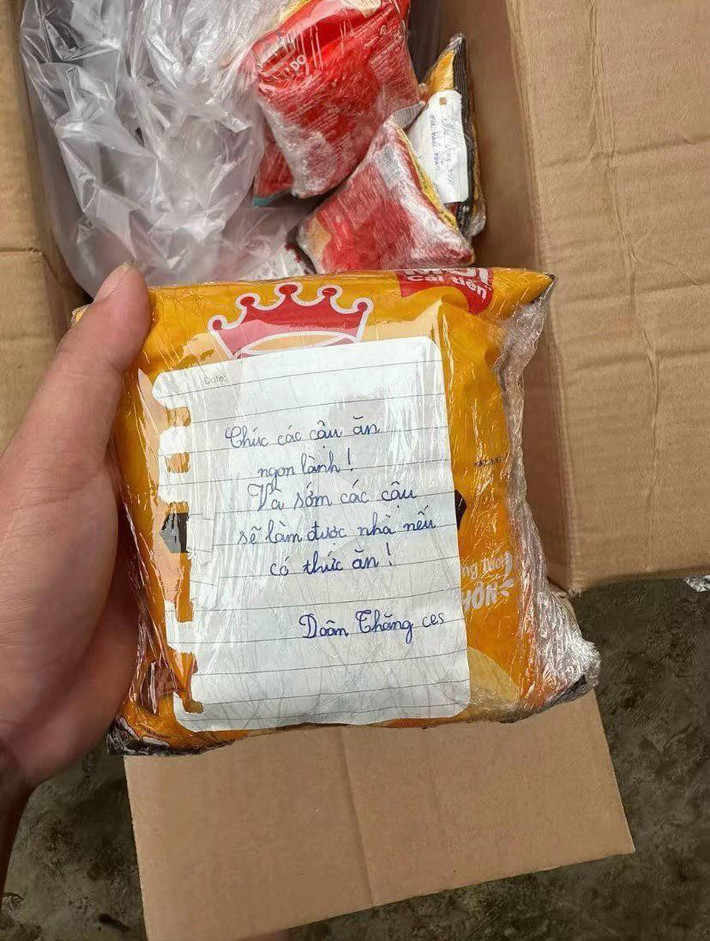 cải tiến
Date:
Chúc các cậu ăn
ngon lành!
Và sớm các cậu
sẽ làm được nhà nếu
có thức ăn!
Doãn Thắng ces